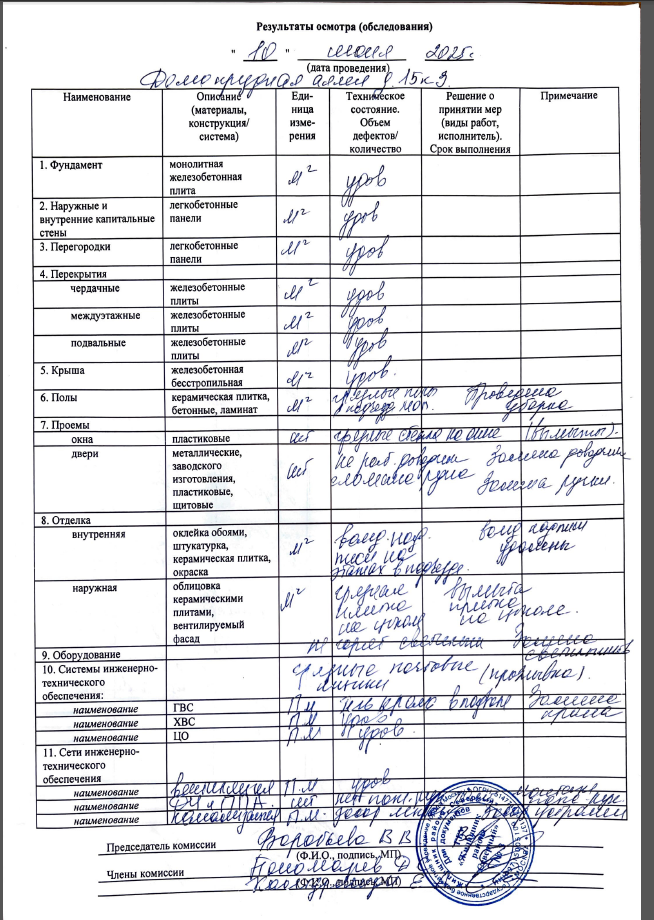 Результаты осмотра (обследования)
" 10 " июня 2025г.
(дата проведения)
аллея д. 15к3.
Наименование Описание (материалы, конструкция/ система) Еди- ница изме- рения Техническое состояние. Объем дефектов/ количество Решение о принятии мер (виды работ, исполнитель). Срок выполнения Примечание
1. Фундамент монолитная железобетонная плита м² удов
2. Наружные и внутренние капитальные стены легкобетонные панели м² удов
3. Перегородки легкобетонные панели м² удов
4. Перекрытия
чердачные железобетонные плиты м² удов
междуэтажные железобетонные плиты м² удов
подвальные железобетонные плиты м² удов
5. Крыша железобетонная бесстропильная м² удов.
6. Полы керамическая плитка, бетонные, ламинат м² грязные полы Проведена уборка
7. Проемы
окна пластиковые шт грязные стекла на окне (вымыты).
двери металлические, заводского изготовления, пластиковые, щитовые шт не раб. доводчик сломана ручка Замена доводчик Замена ручки.
8. Отделка
внутренняя оклейка обоями, штукатурка, керамическая плитка, окраска м² на этажах в подъезде. удалены
наружная облицовка керамическими плитами, вентилируемый фасад м² грязная плитка на цоколе вымыта плитка на цоколе.
не горят светильники Замена светильников
9. Оборудование
10. Системы инженерно-технического обеспечения: грязные почтовые ящики (промывка).
наименование ГВС П.м крана в подвале Замена крана
наименование ХВС П.м удов
наименование ЦО П.м удов.
11. Сети инженерно-технического обеспечения
наименование вентиляция П.м удов
наименование ДУ и ППА. шт нет пож. рук.
наименование канализация П.м. засор
Председатель комиссии Воробьева В В
(Ф.И.О., подпись, МП)
Члены комиссии Пономарев
(Ф.И.О., подпись, МП)